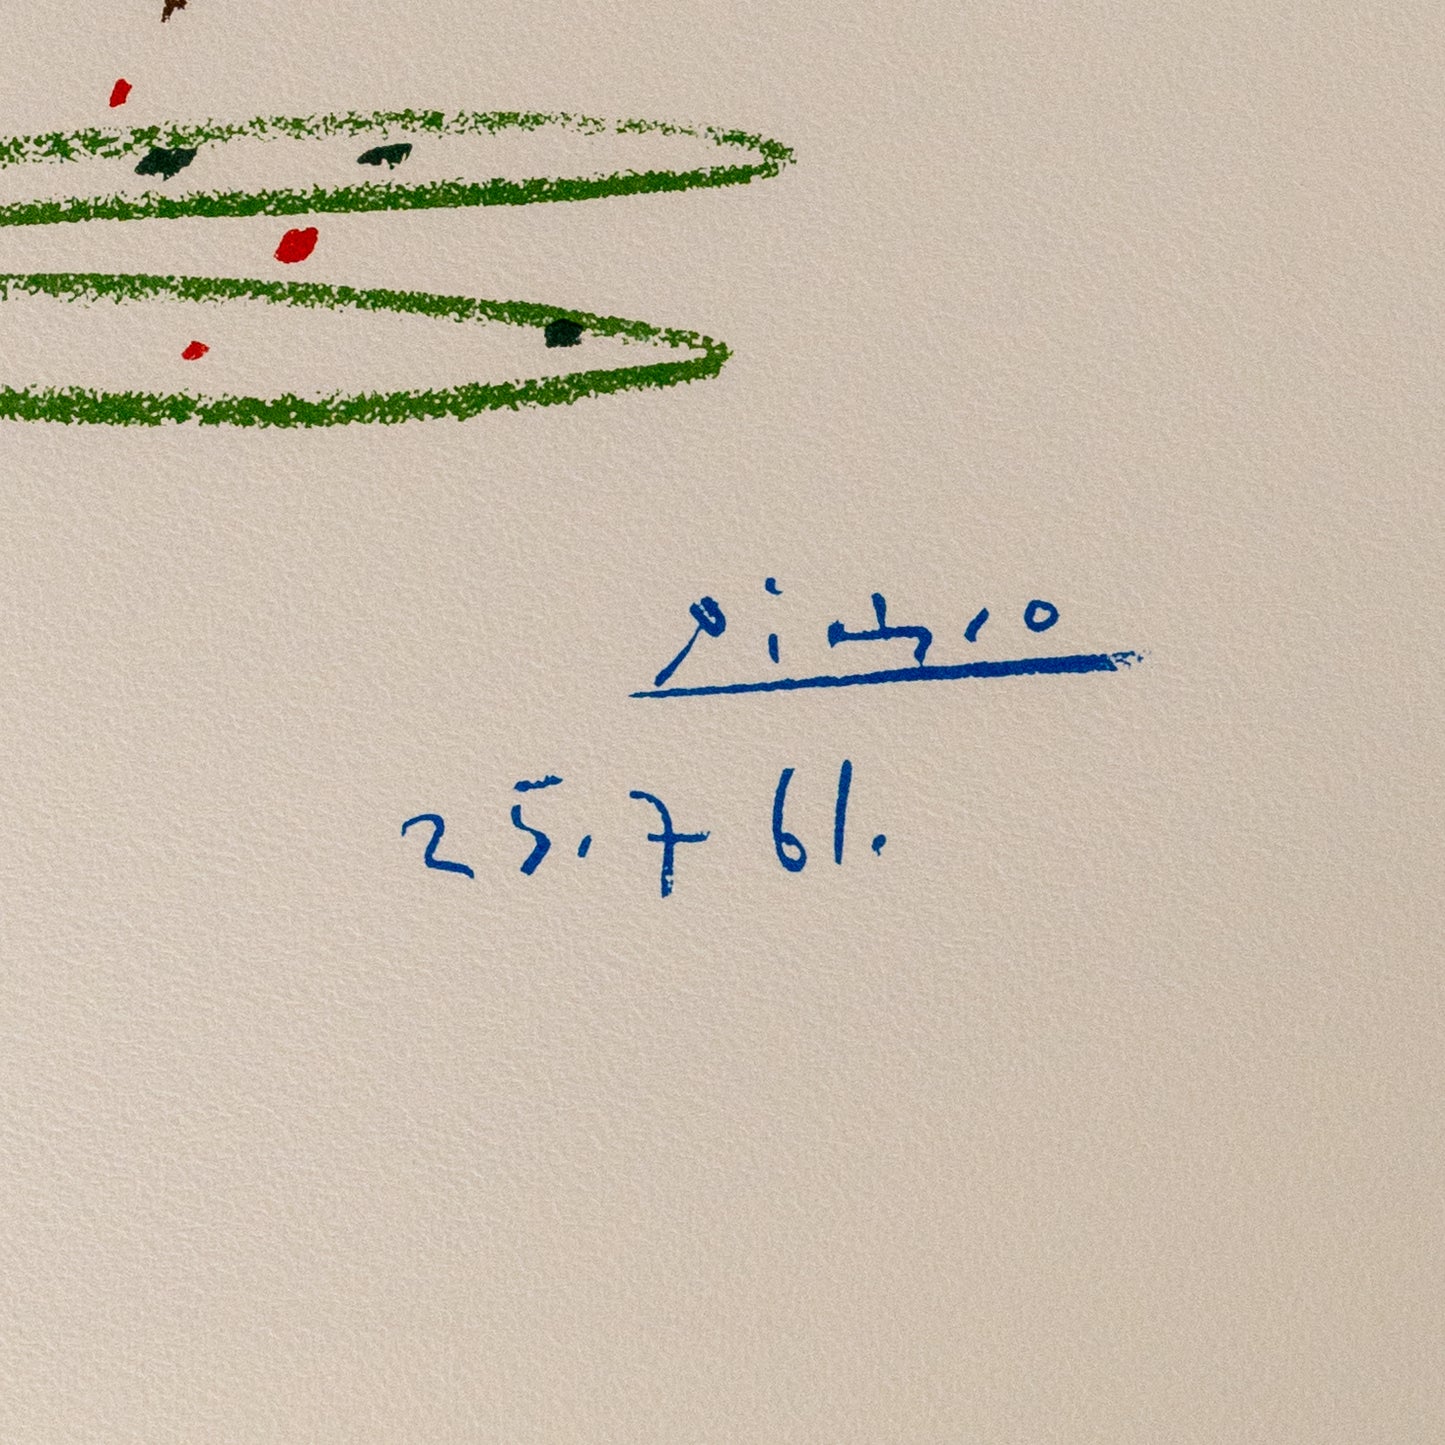 Picasso
25.7 61.